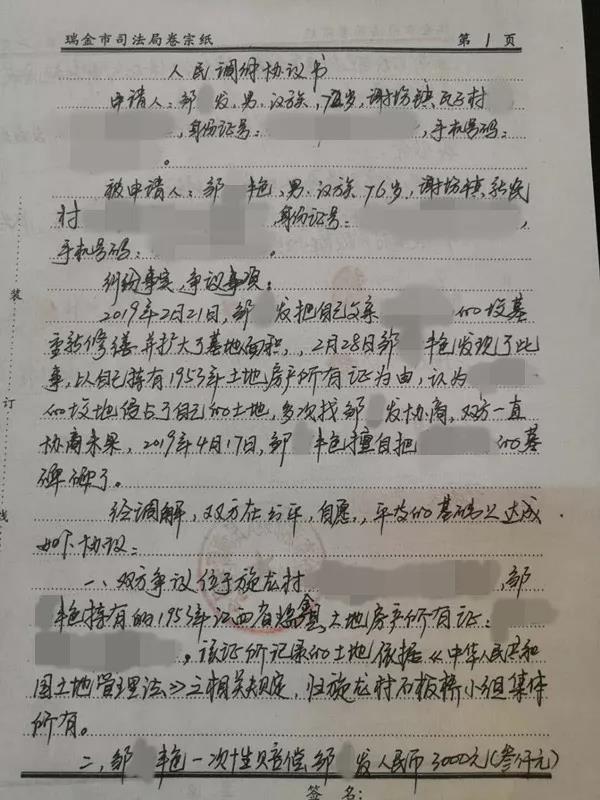 瑞金市司法局卷宗纸 第1页
人民调解协议书
申请人：邹 发，男，汉族，72岁，谢坊镇瓦子村
，身份证号： ，手机号码：
。
被申请人：邹 艳，男，汉族76岁，谢坊镇新民
村 身份证号： ，
手机号码： 。
纠纷事实，争议事项：
2019年2月21日，邹 发把自己父亲 的坟墓
重新修缮并扩大了墓地面积，，2月28日邹 艳发现了此
事，以自己持有1953年土地房产所有证为由，认为
的坟地侵占了自己的土地，多次找邹 发协商，双方一直
协商未果，2019年4月17日，邹 艳擅自把 的墓
碑砸了。
经调解，双方在公平，自愿，，平等的基础上达成
如下协议：
一、双方争议位于施龙村 ，邹
艳持有的1953年江西省瑞金县土地房产所有证：
，该证所记录的土地依据《中华人民共和
国土地管理法》之相关规定，归施龙村石板桥小组集体
所有。
二、邹 艳一次性赔偿邹 发人民币3000元（叁仟元）
签名：
装
订
线